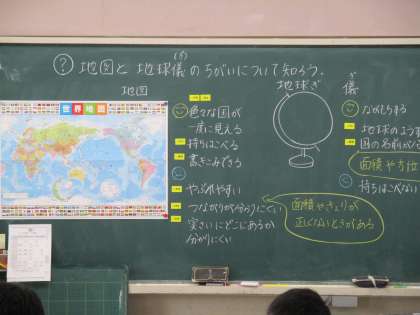 ? 地図と地球儀のちがいについて知ろう。
(ぎ)
地図
世界地図
色々な国が
一度に見える
持ちはこべる
書きこみできる
やぶれやすい
つながりが分かりにくい
実さいにどこにあるか
分かりにくい
地球ぎ
ぎ
儀
ながもちする
地球のよう
国の名前が
面積や方位
持ちはこべない
面積やきょりが
正しくないときがある